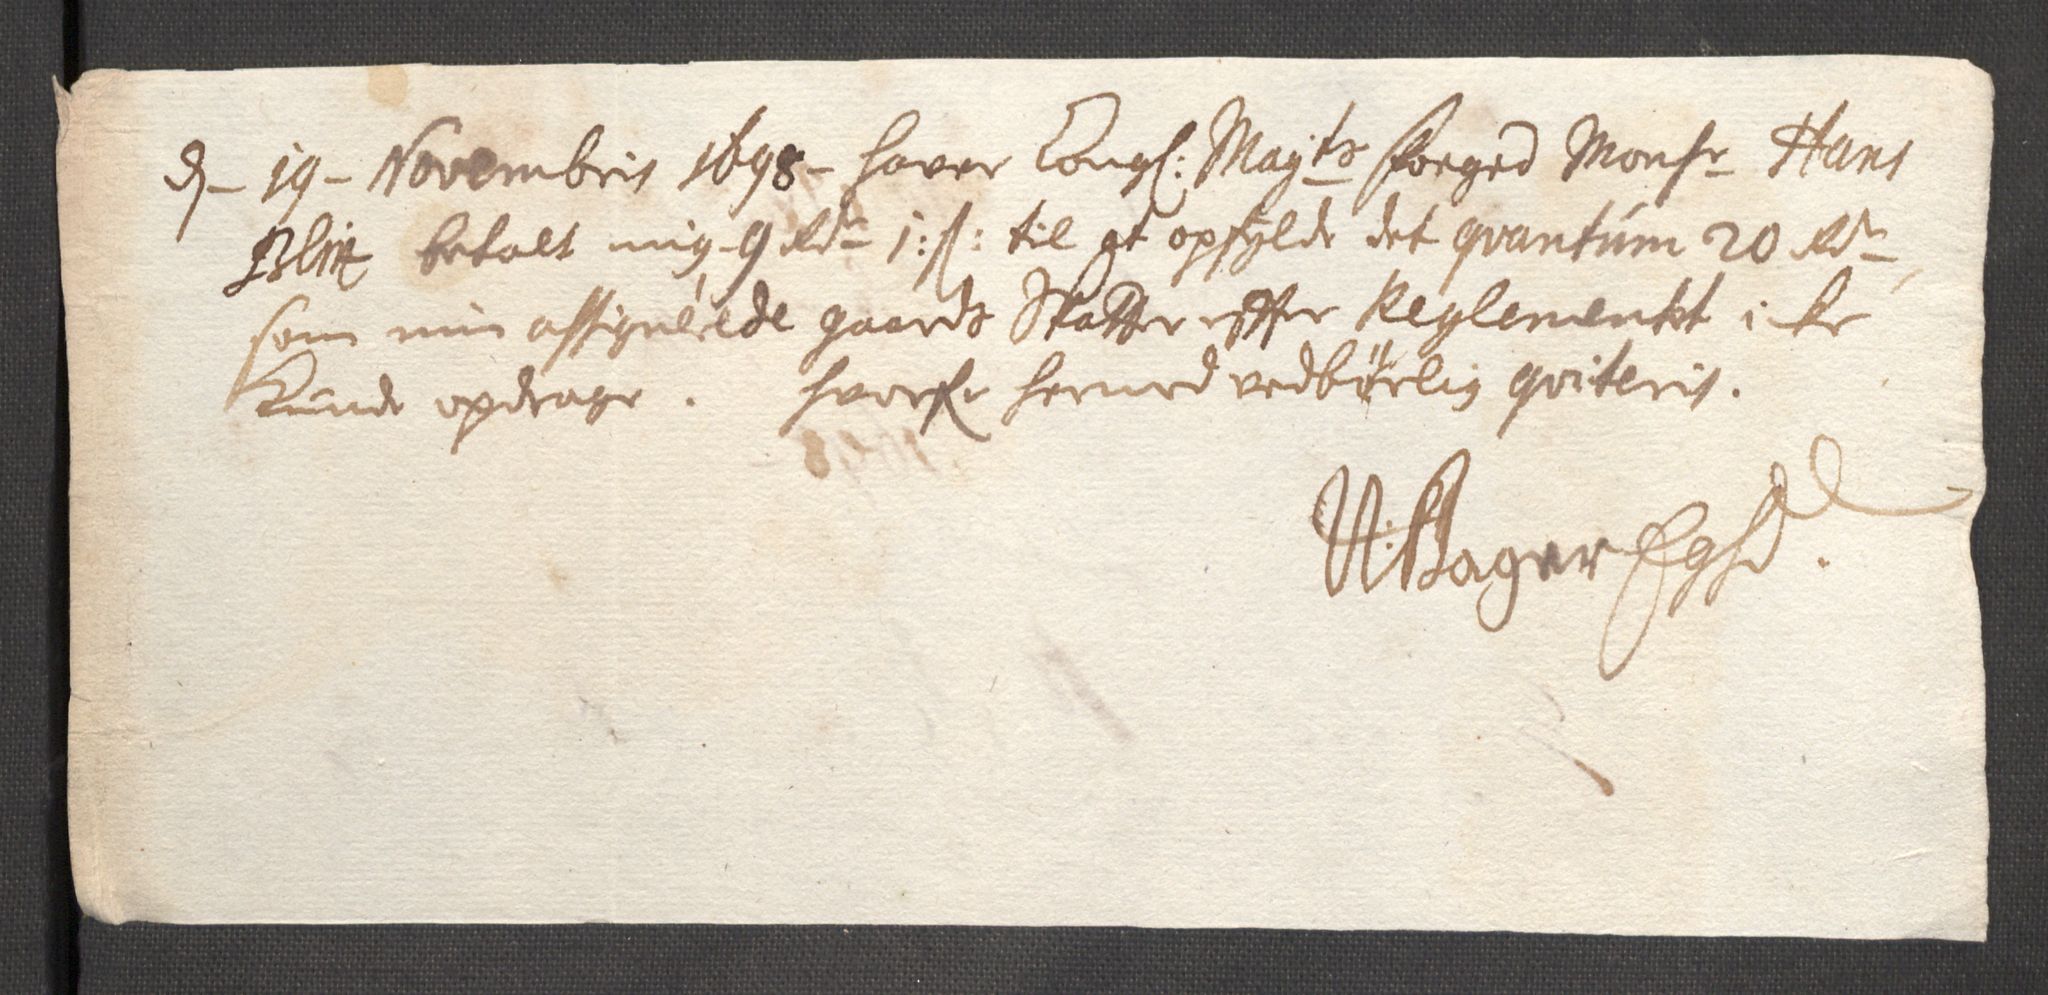 d – 19 – Novembris 1698 – haver Kongl: Mayts foeged Monsr Hans
Blix betalt mig 9 Rdr 1: ß: til at opfylde det qvantúm 20 Rdr
som min assignérede gaards Skatter efter Reglementet i ke
kunde opdrage . hvorfor hermed vedbörlig qviteris .
N: Bager Eghd .